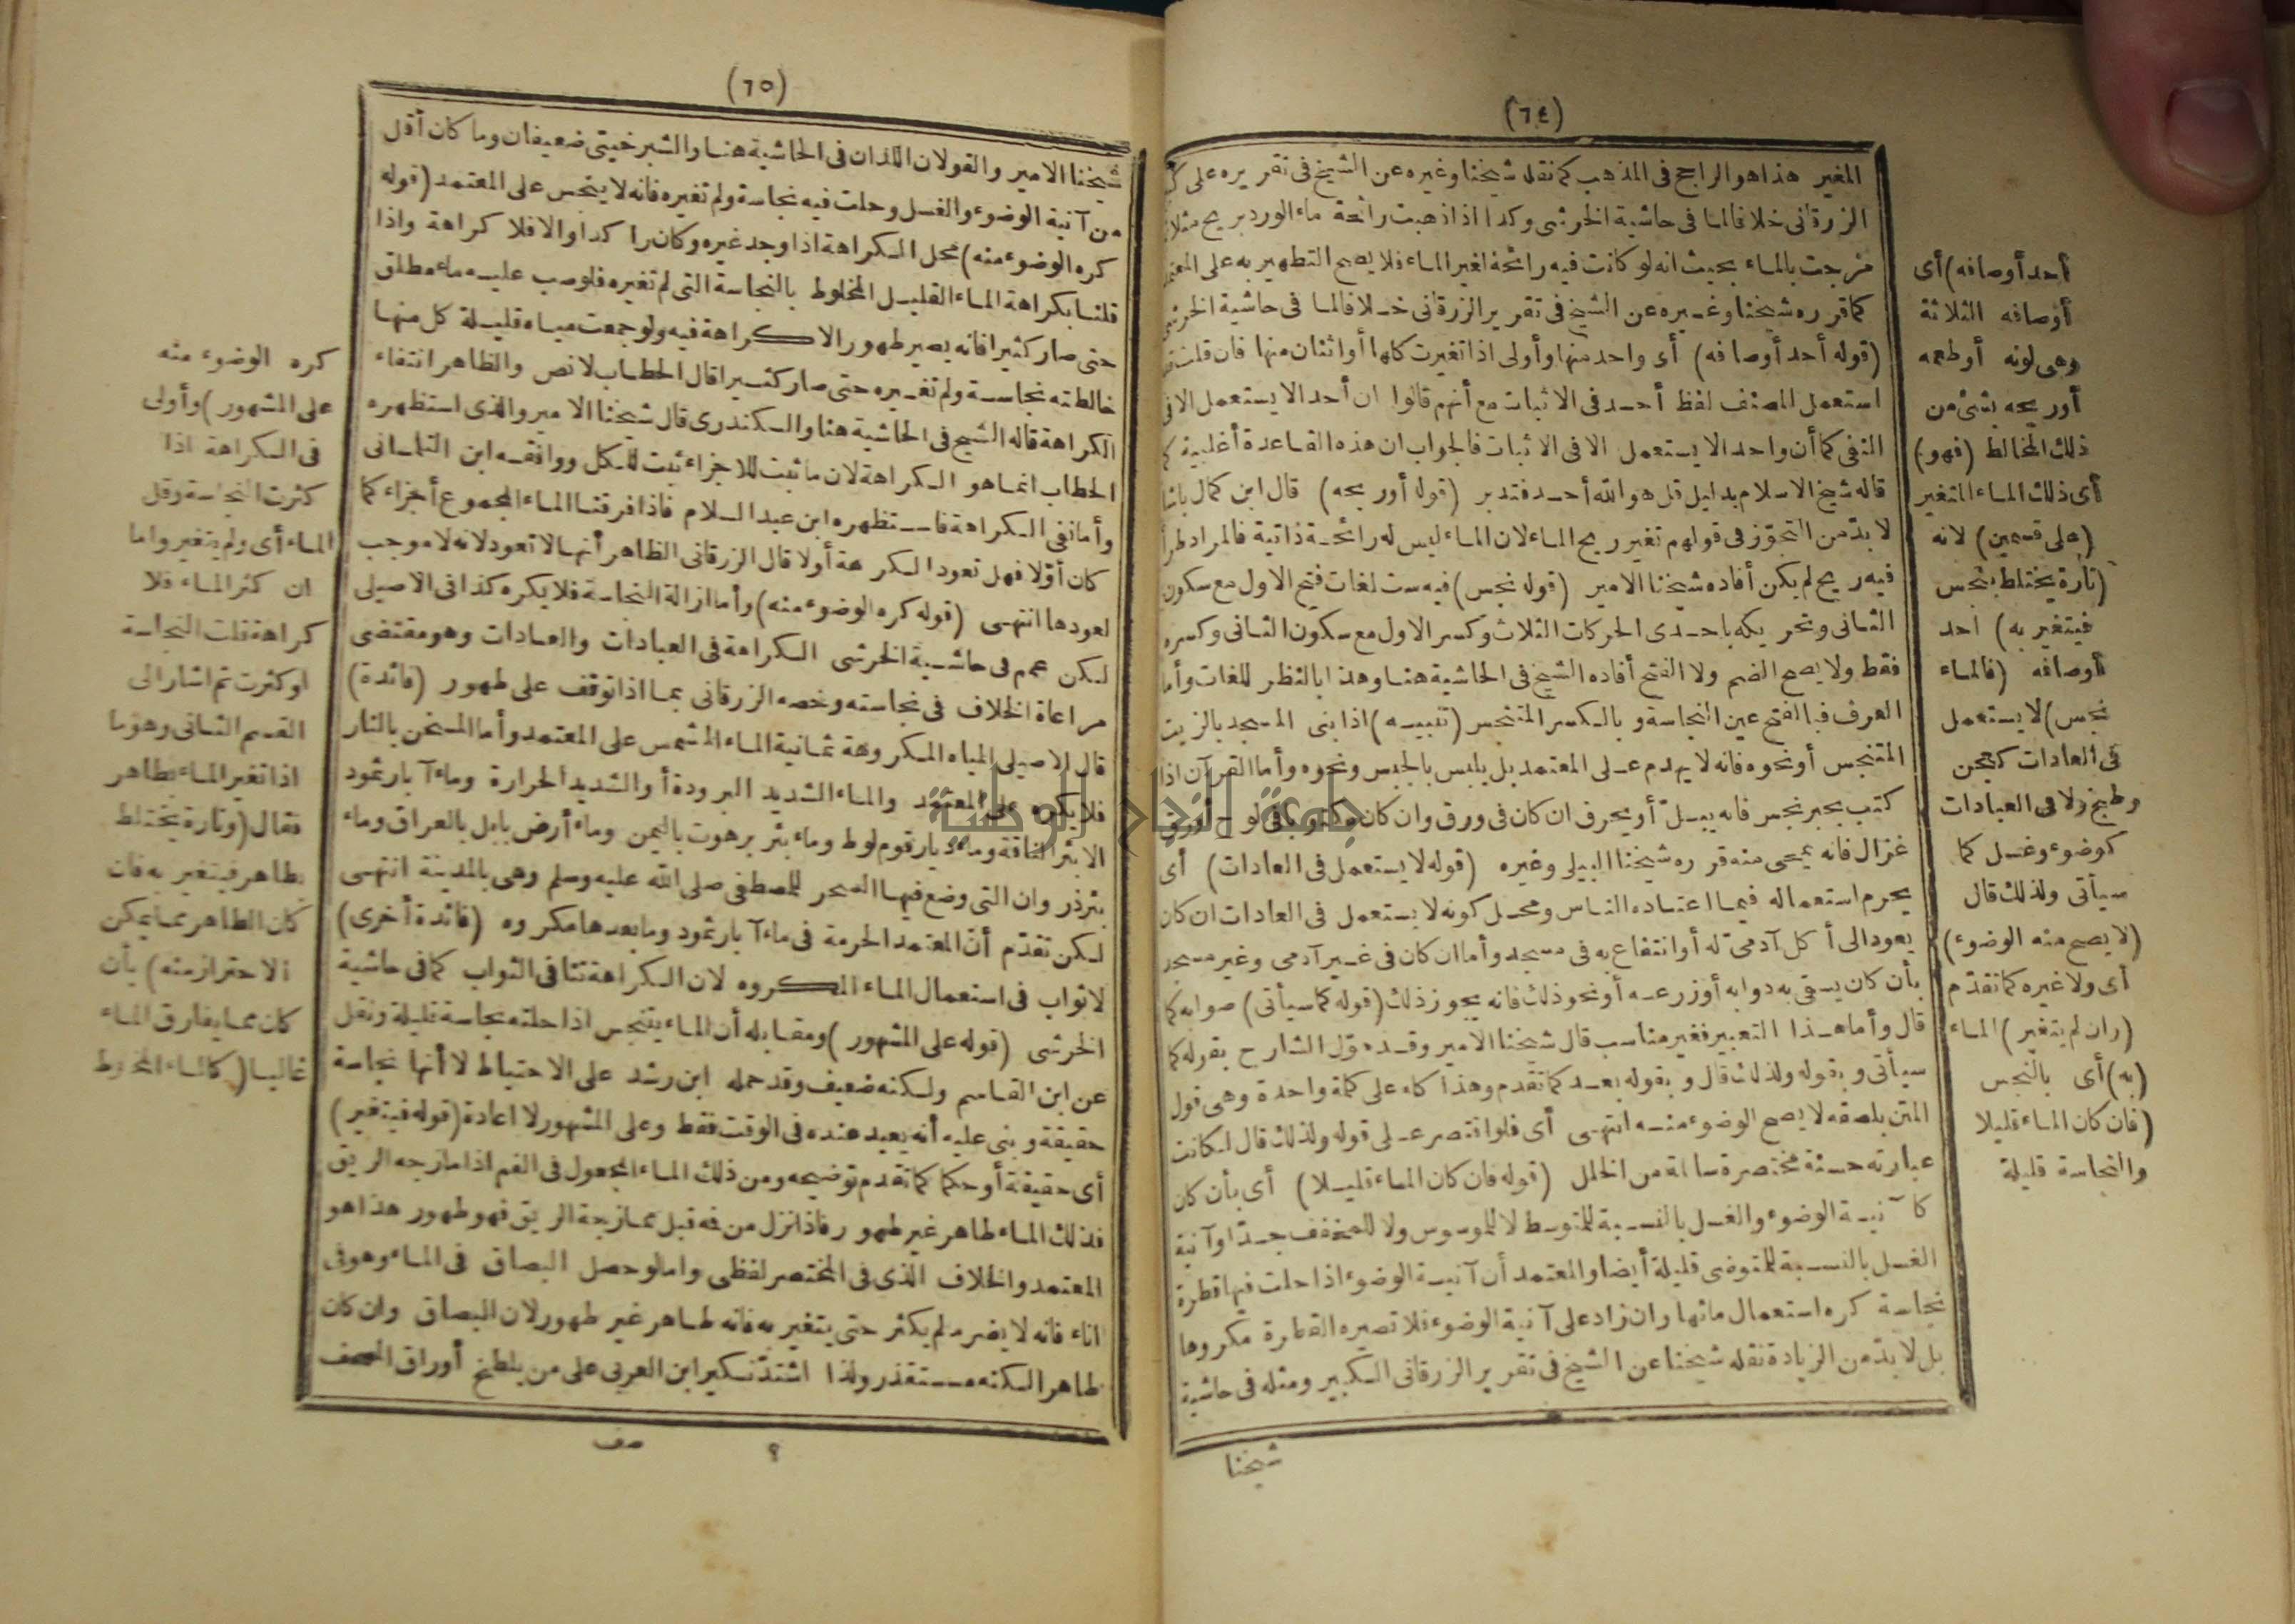 (٦٤)
المغير هذا هو الراجح فى المذهب كما نقله شيخنا وغيره عن الشيخ فى تقريره على
الزرقانى خلافا لما فى حاشية الخرشى وكذا اذا ذهبت رائحة ماء الورد بريح مثلا
مزجت بالماء بحيث انه لو كانت فيه رائحة لغير الماء فلا يصح التطهير به على
كما قرره شيخنا وغيره عن الشيخ فى تقرير الزرقانى خلافا لما فى حاشية الخرشى
(قوله أحد أوصافه) أى واحد منها وأولى اذا تغيرت كلها أو اثنان منها فان قلت
استعمل المصنف لفظ أحد فى الاثبات مع أنهم قالوا ان أحد الا يستعمل الا فى
النفى كما أن واحد الا يستعمل الا فى الاثبات فالجواب ان هذه القاعدة أغلبية
قاله شيخ الاسلام بدليل قل هو الله أحد فتدبر (قوله أو ريحه) قال ابن كمال باشا
لا بدّ من التجوّز فى قولهم تغير ريح الماء لان الماء ليس له رائحة ذاتية فالمراد طرأ
فيه ريح لم يكن أفاده شيخنا الامير (قوله نجس) فيه ست لغات فتح الاول مع سكون
الثانى وتحريكه باحدى الحركات الثلاث وكسر الاول مع سكون الثانى وكسره
فقط ولا يصح الضم ولا الفتح أفاده الشيخ فى الحاشية هنا وهذا بالنظر للغات وأما
العرف فبالفتح عين النجاسة وبالكسر المتنجس (تنبيه) اذا بنى المسجد بالزيت
المتنجس أو نحوه فانه لا يهدم على المعتمد بل يلبس بالجبس ونحوه وأما القرآن اذا
كتب بحبر نجس فانه يبل أو يحرق ان كان فى ورق وان كان مكتوبا فى لوح أو رق
غزال فانه يمحى منه قرره شيخنا البيلى وغيره (قوله لا يستعمل فى العادات) أى
يحرم استعماله فيما اعتاده الناس ومحل كونه لا يستعمل فى العادات ان كان
يعود الى أكل آدمىّ له أو انتفاع به فى مسجد وأما ان كان فى غير آدمى وغير مسجد
بأن كان يسقى به دوابه أو زرعه أو نحو ذلك فانه يجوز ذلك (قوله كما سيأتى) صوابه كما
قال وأما هذا التعبير فغير مناسب قال شيخنا الامير وقد قول الشارح بقوله كما
سيأتى وبقوله ولذلك قال وبقوله بعد كما تقدم وهذا كله على كلمة واحدة وهى قول
المتن بلصقه لا يصح الوضوء منه انتهى أى فلو اقتصر على قوله ولذلك قال لكانت
عبارته حسنة مختصرة سالمة من الخلل (قوله فان كان الماء قليلا) أى بأن كان
كآنية الوضوء والغسل بالنسبة للمتوسط لا للموسوس ولا للمخفف جدّا وآنية
الغسل بالنسبة للمتوضى قليلة أيضا والمعتمد أن آنية الوضوء اذا حلت فيها قطرة
نجاسة كره استعمال مائها وان زاد على آنية الوضوء فلا تصيره القطرة مكروها
بل لا بدّ من الزيادة نقله شيخنا عن الشيخ فى تقرير الزرقانى الكبير ومثله فى حاشية
شيخنا
أحد أوصافه) أى
أوصافه الثلاثة
وهى لونه أو طعمه
أو ريحه بشئ من
ذلك المخالط (فهو)
أى ذلك الماء المتغير
(على قسمين) لانه
(تارة يختلط بنجس
فيتغير به) احد
أوصافه (فالماء
نجس) لا يستعمل
فى العادات كعجن
وطبخ ولا فى العبادات
كوضوء وغسل كما
سيأتى ولذلك قال
(لا يصح منه الوضوء)
أى ولا غيره كما تقدّم
(وان لم يتغير) الماء
(به) أى بالنجس
(فان كان الماء قليلا
والنجاسة قليلة
(٦٥)
شيخنا الامير والقولان اللذان فى الحاشية هنا والشبرخيتى ضعيفان وما كان أقل
من آنية الوضوء والغسل وحلت فيه نجاسة ولم تغيره فانه لا ينجس على المعتمد (قوله
كره الوضوء منه) محل الكراهة اذا وجد غيره وكان راكدا والا فلا كراهة واذا
قلنا بكراهة الماء القليل المخلوط بالنجاسة التى لم تغيره فلو صب عليه ماء مطلق
حتى صار كثيرا فانه يصير طهورا لا كراهة فيه ولو جمعت مياه قليلة كل منها
خالطته نجاسة ولم تغيره حتى صار كثيرا قال الحطاب لا نص والظاهر انتفاء
الكراهة قاله الشيخ فى الحاشية هنا والسكندرى قال شيخنا الامير والذى استظهره
الحطاب انما هو الكراهة لان ما ثبت للاجزاء ثبت للكل ووافقه ابن التلمسانى
وأما نفى الكراهة فاستظهره ابن عبد السلام فاذا فرقنا الماء المجموع أجزاء كما
كان أوّلا فهل تعود الكراهة أو لا قال الزرقانى الظاهر أنها لا تعود لانه لا موجب
لعودها انتهى (قوله كره الوضوء منه) وأما ازالة النجاسة فلا يكره كذا فى الاصيلى
لكن عمم فى حاشية الخرشى الكراهة فى العبادات والعادات وهو مقتضى
مراعاة الخلاف فى نجاسته وخصه الزرقانى بما اذا توقف على طهور (فائدة)
قال الاصيلى المياه المكروهة ثمانية الماء المشمس على المعتمد وأما المسخن بالنار
فلا يكره على المعتمد والماء الشديد البرودة أو الشديد الحرارة وماء آبار ثمود
الا بئر الناقة وماء ديار قوم لوط وماء بئر برهوت باليمن وماء أرض بابل بالعراق وماء
بئر ذروان التى وضع فيها السحر للمصطفى صلى الله عليه وسلم وهى بالمدينة انتهى
لكن تقدّم أن المعتمد الحرمة فى ماء آبار ثمود وما بعدها مكروه (فائدة أخرى)
لا ثواب فى استعمال الماء المكروه لان الكراهة تنافى الثواب كما فى حاشية
الخرشى (قوله على المشهور) ومقابله أن الماء يتنجس اذا حلته نجاسة قليلة ونقل
عن ابن القاسم ولكنه ضعيف وقد حمله ابن رشد على الاحتياط لا أنها نجاسة
حقيقة وبنى عليه أنه يعيد عنده فى الوقت فقط وعلى المشهور لا اعادة (قوله فيتغير)
أى حقيقة أو حكما كما تقدم توضيحه ومن ذلك الماء المجعول فى الفم اذا مازجه الريق
فذلك الماء طاهر غير طهور فاذا نزل من فمه قبل ممازجة الريق فهو طهور هذا هو
المعتمد والخلاف الذى فى المختصر لفظى واما لو حصل البصاق فى الماء وهو فى
اناء فانه لا يضر ما لم يكثر حتى يتغير به فانه طاهر غير طهور لان البصاق وان كان
طاهرا لكنه مستقذر ولذا اشتدّ نكير ابن العربى على من يلطخ أوراق المصحف
٩ صف
كره الوضوء منه
على المشهور) وأولى
فى الكراهة اذا
كثرت النجاسة وقل
الماء أى ولم يتغير واما
ان كثر الماء فلا
كراهة قلت النجاسة
او كثرت ثم اشار الى
القسم الثانى وهو ما
اذا تغير الماء بطاهر
فقال (وتارة يختلط
بطاهر فيتغير به فان
كان الطاهر مما يمكن
الاحتراز منه) بأن
كان مما يفارق الماء
غالبا (كالماء المخلوط
جامعة النجاح الوطنية